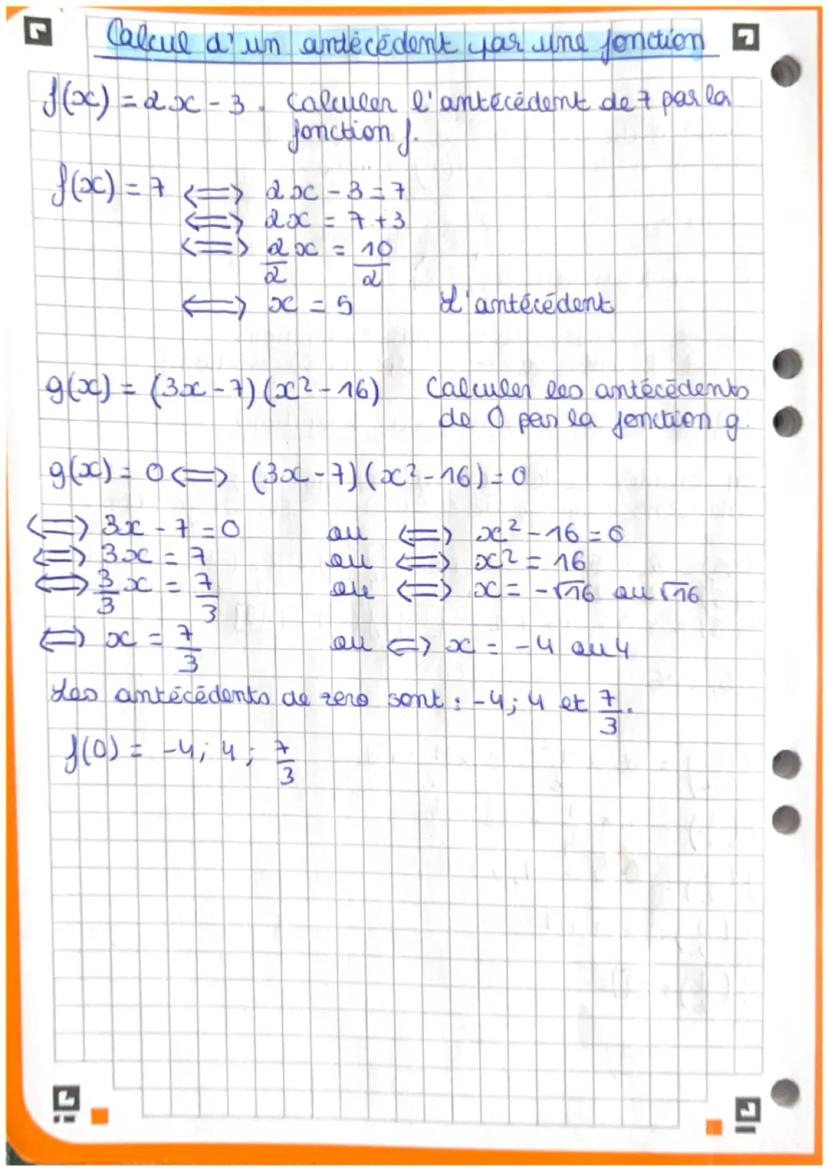 Calcul d'un antécédent par une fonction
f(x) = 2x - 3. Calculer l'antécédent de 7 par la
fonction f.
f(x) = 7 <=> 2x - 3 = 7
<=> 2x = 7 + 3
<=> 2/2 x = 10/2
<=> x = 5 L'antécédent
g(x) = (3x - 7)(x² - 16) Calculer les antécédents
de 0 par la fonction g
g(x) = 0 <=> (3x - 7)(x² - 16) = 0
<=> 3x - 7 = 0 ou <=> x² - 16 = 0
<=> 3x = 7 ou <=> x² = 16
<=> 3/3 x = 7/3 ou <=> x = -√16 ou √16
<=> x = 7/3 ou <=> x = -4 ou 4
Les antécédents de zero sont : -4 ; 4 et 7/3.
f(0) = -4 ; 4 ; 7/3